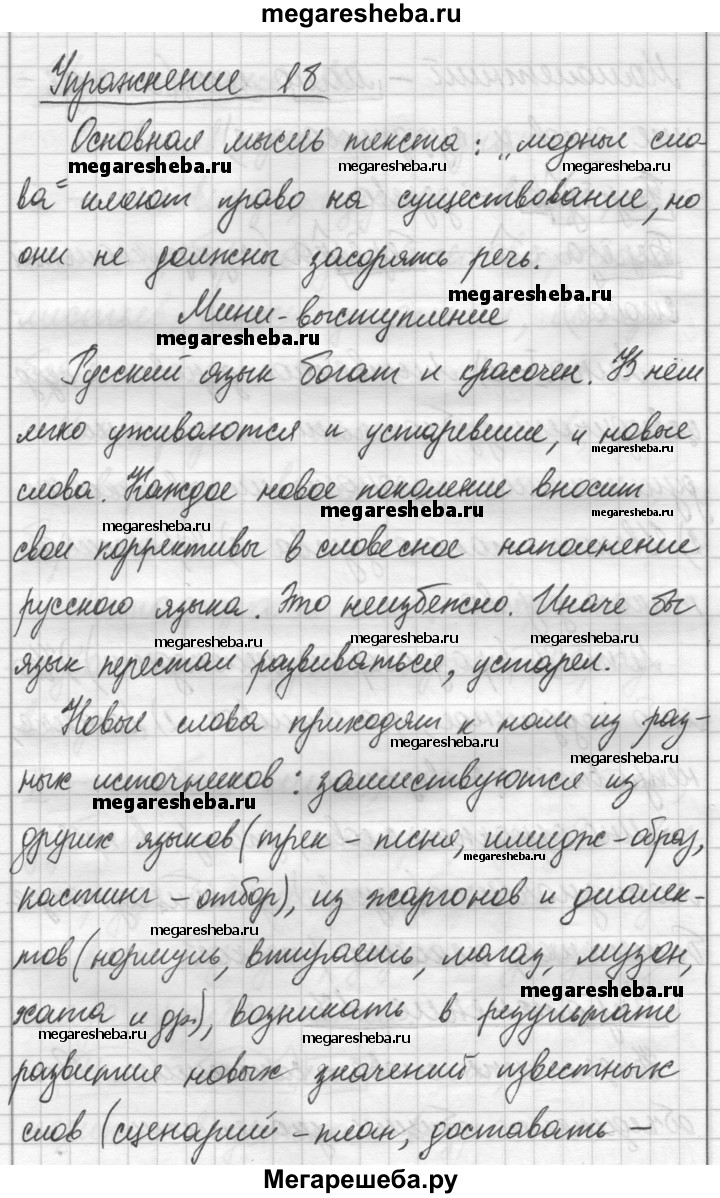 megaresheba.ru
Упражнение 18
Основная мысль текста: „модные сло-
megaresheba.ru megaresheba.ru megaresheba.ru
ва" имеют право на существование, но
они не должны засорять речь.
megaresheba.ru
Мини-выступление
megaresheba.ru
Русский язык богат и красочен. В нём
легко уживаются и устаревшие, и новые
megaresheba.ru
слова. Каждое новое поколение вносит
megaresheba.ru megaresheba.ru megaresheba.ru
свои коррективы в словесное наполнение
русского языка. Это неизбежно. Иначе бы
megaresheba.ru megaresheba.ru megaresheba.ru
язык перестал развиваться, устарел.
Новые слова приходят к нам из раз-
megaresheba.ru
ных источников: заимствуются из
megaresheba.ru
других языков (трек - песня, имидж - образ,
megaresheba.ru
кастинг - отбор), из жаргонов и диалек-
megaresheba.ru
тов (нормуль, втираешь, магаз, музон,
megaresheba.ru
хата и др.), возникать в результате
megaresheba.ru megaresheba.ru
развития новых значений известных
слов (сценарий - план, доставать -
Мегарешеба.ру